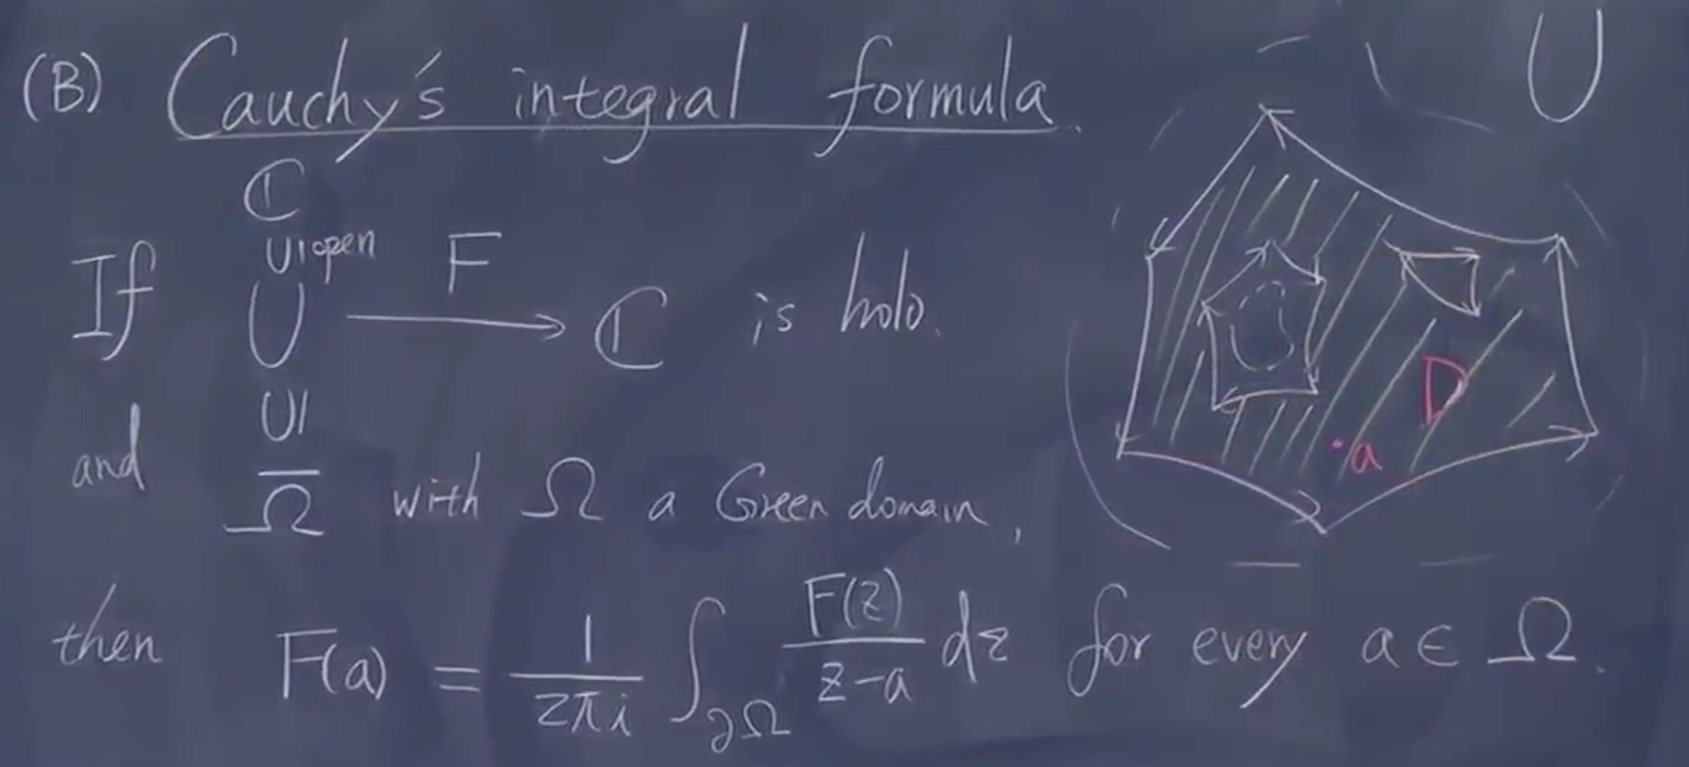 (B) Cauchy's integral formula.
U
ℂ
U| open
If U F → ℂ is holo.
U|
and Ω̅ with Ω a Green domain,
D
a
then F(a) = 1/2πi ∫∂Ω F(z)/z-a dz for every a ∈ Ω.